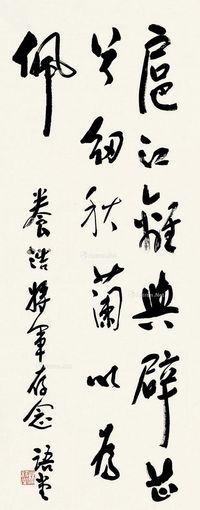 扈江離與辟芷
兮紉秋蘭以為
佩
養浩將軍存念 語堂